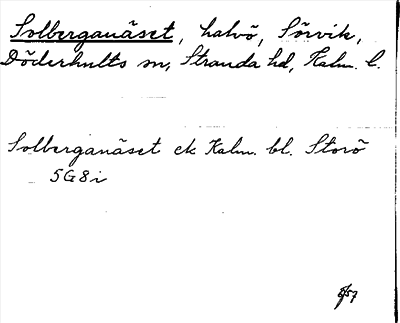 Solberganäset, halvö, Sörvik,
Döderhults sn, Stranda hd, Kalm. l.
Solberganäset ek Kalm. bl. Storö
5G8i